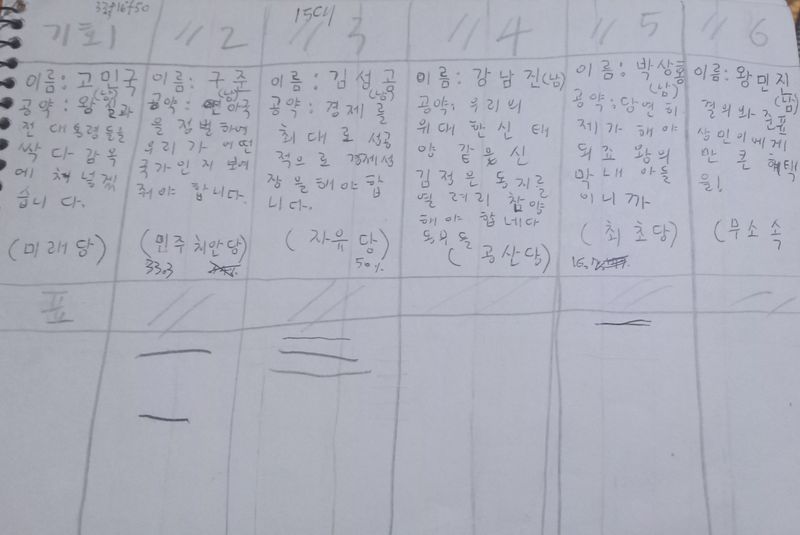 33+16+50
15대
기호1
〃2
〃3
〃4
〃5
〃6
이름: 고민국
(남)
공약: 왕
전 대통령들을
싹 다 감옥
에 쳐 넣겠
습니다.
(미래당)
이름: 구준
(남)
공약:
을 정벌하여
우리가 어떤
국가인지 보여
줘야 합니다.
(민주 치안당)
33.3
이름: 김성공
(남)
공약: 경제를
최대로 성공
적으로 경제성
장을 해야 합
니다.
(자유당)
50%
이름: 강남진(남)
공약: 우리의
위대한 신 태
양 같은 신
김정은 동지를
열렬히 찬양
해야 합네다
동무들
(공산당)
이름: 박상통
(남)
공약: 당연히
제가 해야
되죠 왕의
막내 아들
이니까
(최초당)
16.7
이름: 왕민진
(남)
상인이에게
만 큰 혜택
을!
(무소속
표
〃
〃
〃
〃
〃